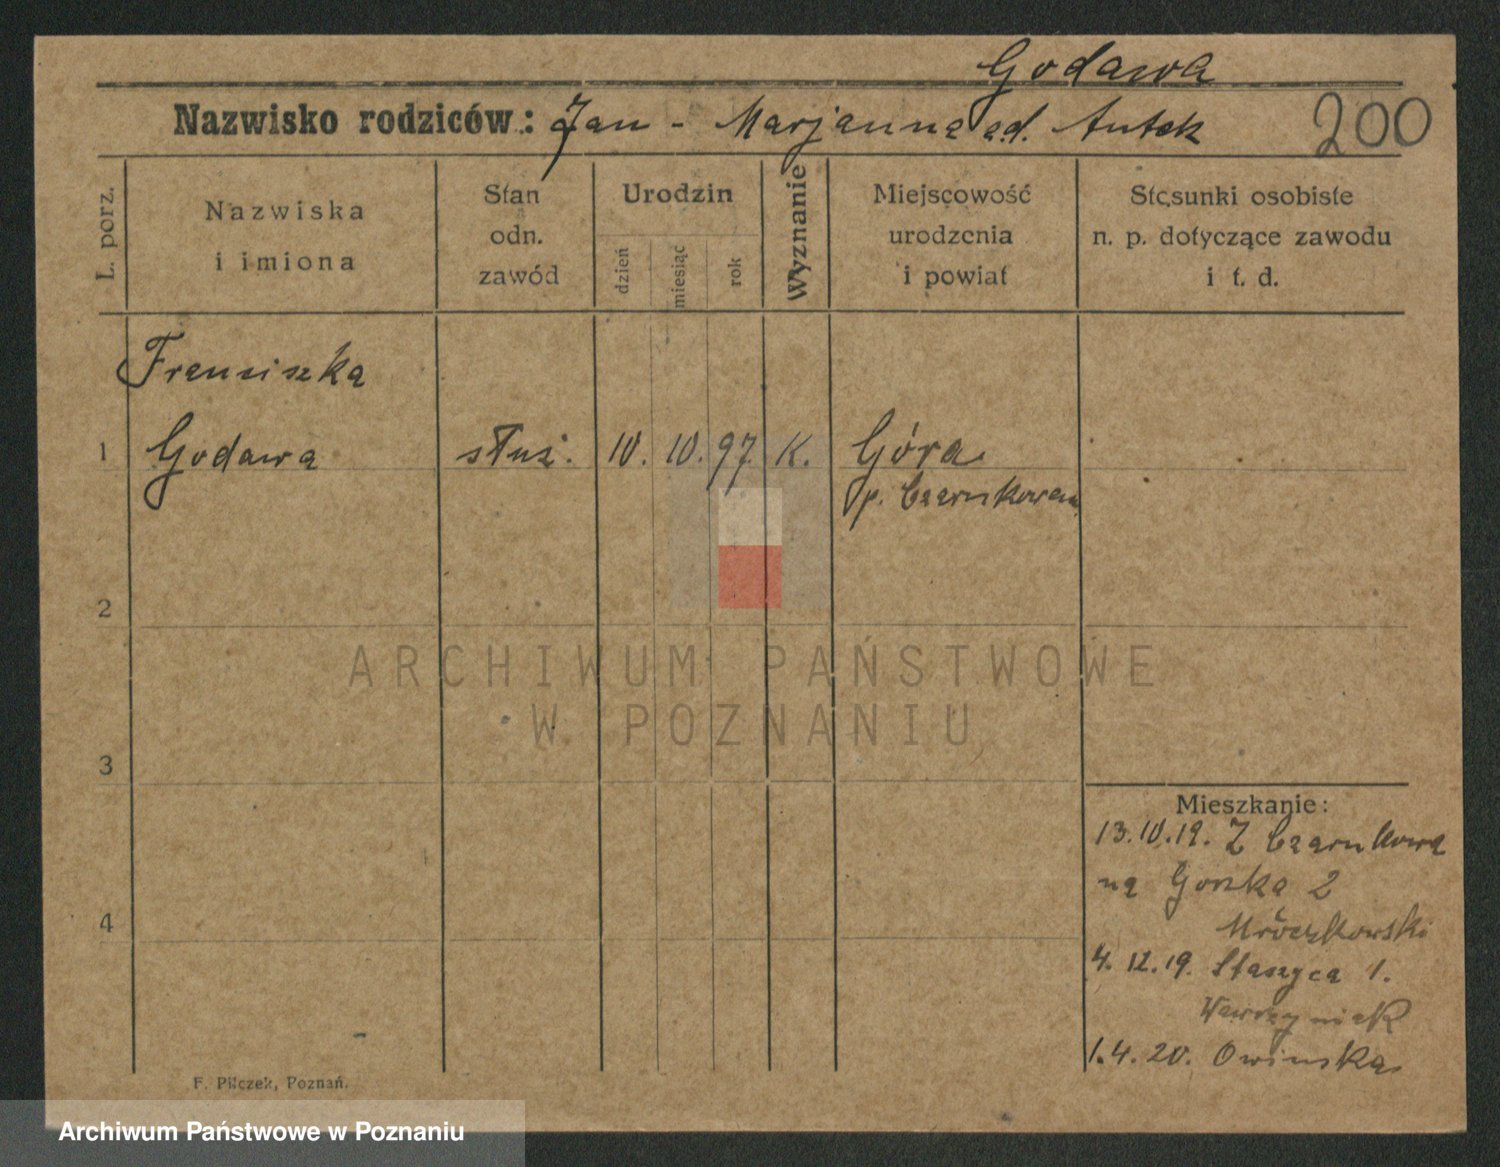 Godawa
Nazwisko rodziców: Jan - Marjanna Antek
200
L. porz.
Nazwiska i imiona
Stan odn. zawód
Urodzin
dzień
miesiąc
rok
Wyznanie
Miejscowość urodzenia i powiat
Stosunki osobiste n. p. dotyczące zawodu i t. d.
Franciszka
1 Godawa służ. 10. 10. 97 K. Góra
p. Czarnkowem
2
ARCHIWUM PAŃSTWOWE
W POZNANIU
3
Mieszkanie:
13.10.19. Z Czarnkowa
na Gorzka 2
Mróczkowski
4
4.12.19. Staszyca 1.
Wawrzyniak
1.4.20. Owinska
F. Pilczek, Poznań.
Archiwum Państwowe w Poznaniu